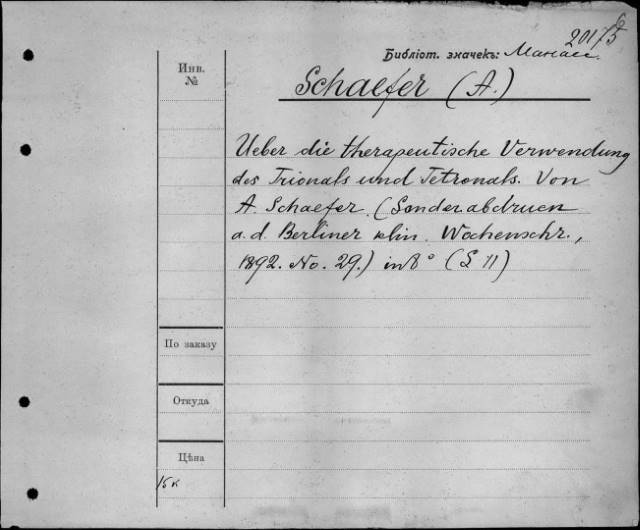 20175
Библіот. значекъ: Манасс.
Инв. №
Schaefer (A.)
Ueber die therapeutische Verwendung
des Trionals und Tetronals. Von
A. Schaefer. (Sonderabdrucn
a. d. Berliner klin. Wochenschr.,
1892. No. 29.) in 8° (S 11)
По заказу
Откуда
Цѣна
15к